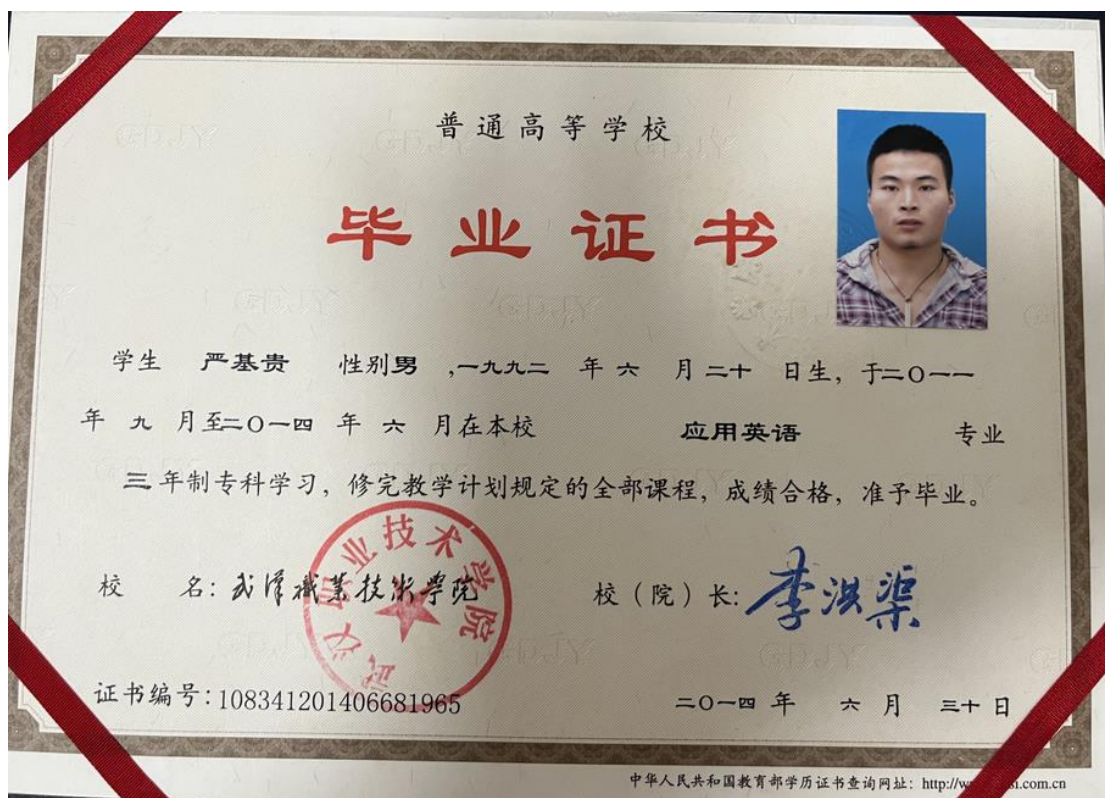 普通高等学校
毕业证书
学生 严基贵 性别男 ,一九九二 年 六 月 二十 日生, 于二〇一一
年 九 月至二〇一四 年 六 月在本校 应用英语 专业
三 年制专科学习, 修完教学计划规定的全部课程, 成绩合格, 准予毕业。
武汉职业技术学院
校 名: 武漢職業技術學院 校（院）长: 李洪渠
证书编号: 108341201406681965 二〇一四 年 六 月 三十 日
中华人民共和国教育部学历证书查询网址: http://w
.com.cn